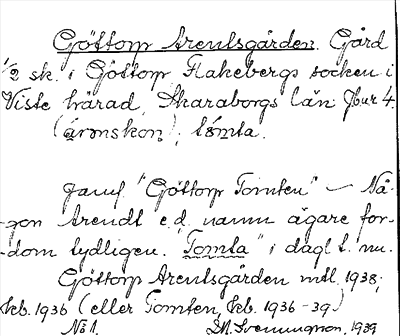 Göttorp Arentsgården. Gård
1/2 sk. i Göttorp Flakebergs socken i
Viste härad, Skaraborgs län Jbnr 4.
tòmta.
Jämf. "Göttorp Tomten" – Nå-
-gon Arendt e.d. namn ägare for-
-dom tydligen. "Tomta" i dagl. t. nu.
Göttorp Arentsgården mtl. 1938;
feb. 1936 (eller Tomten, feb. 1936-39)
No 1. 1939